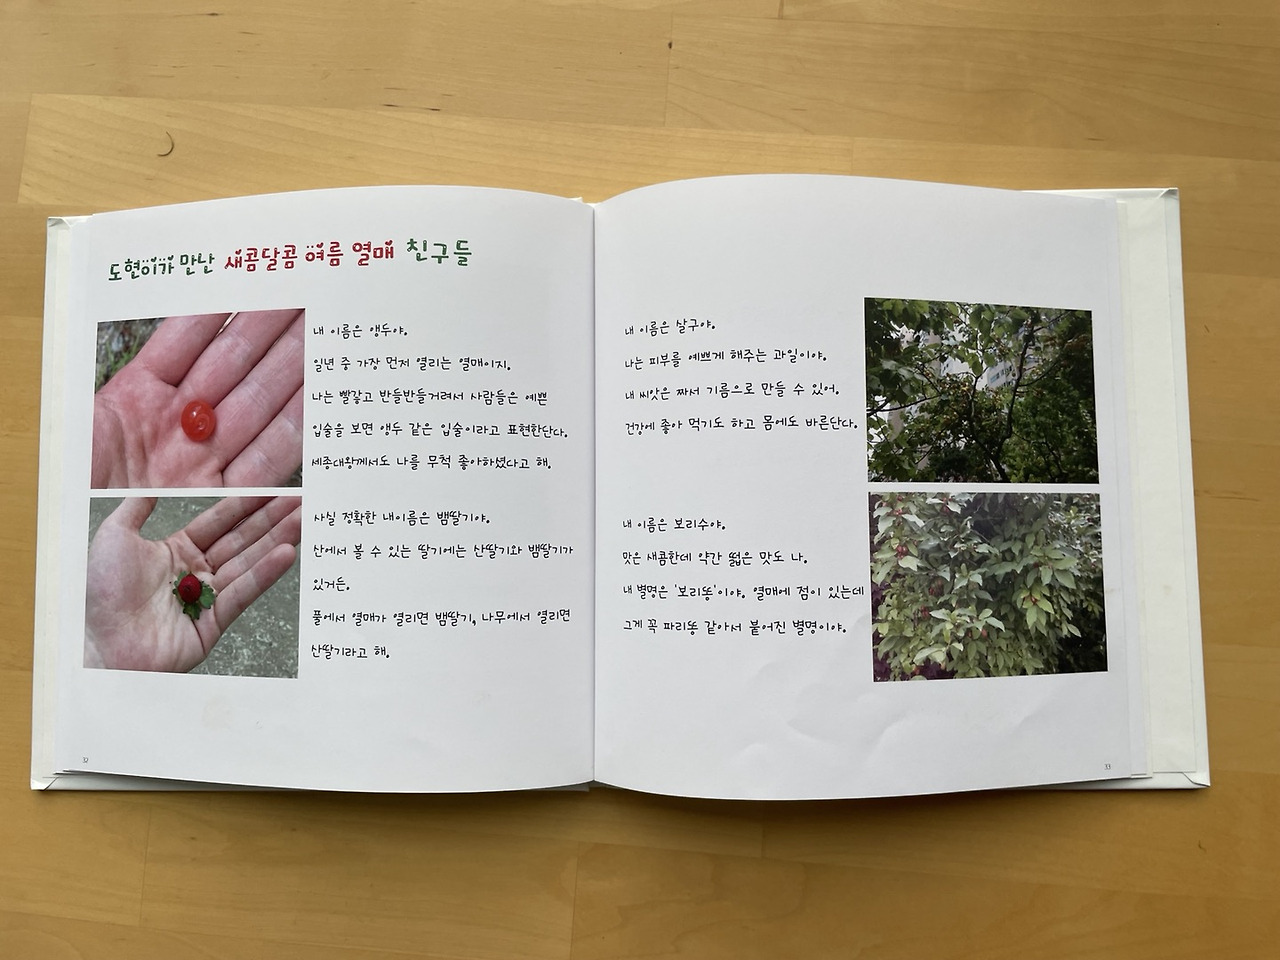 도현이가 만난 새콤달콤 여름 열매 친구들
내 이름은 앵두야.
일년 중 가장 먼저 열리는 열매이지.
나는 빨갛고 반들반들거려서 사람들은 예쁜
입술을 보면 앵두 같은 입술이라고 표현한단다.
세종대왕께서도 나를 무척 좋아하셨다고 해.
사실 정확한 내이름은 뱀딸기야.
산에서 볼 수 있는 딸기에는 산딸기와 뱀딸기가
있거든.
풀에서 열매가 열리면 뱀딸기, 나무에서 열리면
산딸기라고 해.
32
내 이름은 살구야.
나는 피부를 예쁘게 해주는 과일이야.
내 씨앗은 짜서 기름으로 만들 수 있어.
건강에 좋아 먹기도 하고 몸에도 바른단다.
내 이름은 보리수야.
맛은 새콤한데 약간 떫은 맛도 나.
내 별명은 '보리똥'이야. 열매에 점이 있는데
그게 꼭 파리똥 같아서 붙어진 별명이야.
33